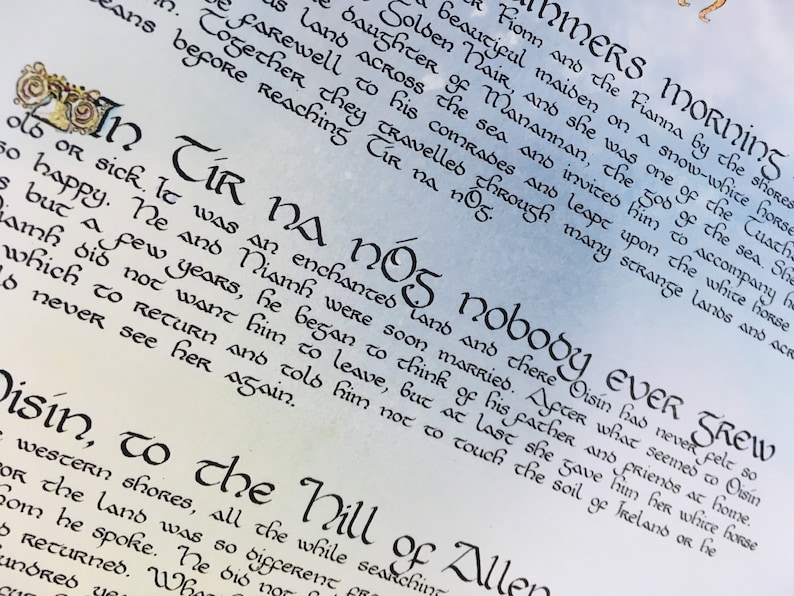 summers morning
Fionn and the Fianna by the shores
a beautiful maiden on a snow-white horse
Golden Hair, and she was one of the Tuath
daughter of Manannan, the god of the sea. She
land across the sea and invited him to accompany
farewell to his comrades and leapt upon the white horse
Together they travelled through many strange lands and
before reaching Tír na nÓg
In Tír na nÓg nobody ever grew
old or sick. It was an enchanted land and there Oisín had never felt so
so happy. He and Niamh were soon married. After what seemed to Oisín
but a few years, he began to think of his father and friends at home.
did not want him to leave, but at last she gave him her white horse
which to return and told him not to touch the soil of Ireland or he
never see her again.
Oisín, to the Hill of Allen
western shores, all the while searching
the land was so different
he spoke. He did not
returned.